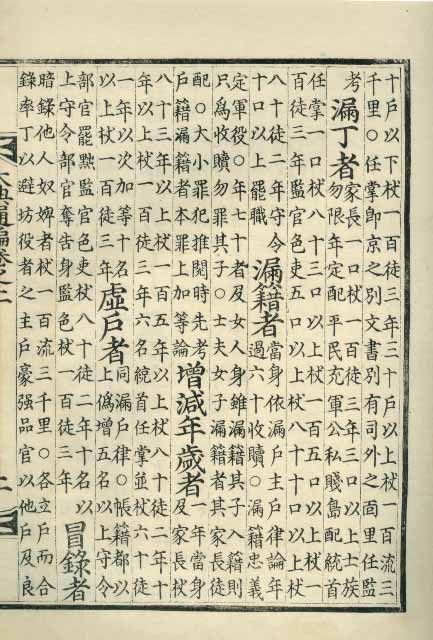 十戶以下杖一百徒三年三十戶以上杖一百流三
千里○任掌卽京之別文書別有司外之面里任監
考
漏丁者
家長一口杖一百徒三年三口以上士族
勿限年定配平民充軍公私賤島配統首
任掌一口杖八十三口以上杖一百五口以上杖一
百徒三年監官色吏五口以上杖八十十口以上杖
八十徒二年守令
十口以上罷職
漏籍者
當身依漏戶主戶律論年
過六十收贖○漏籍忠義
定軍役○年七十者及女人身雖漏籍其子入籍則
只爲收贖勿罪其子○士夫女子漏籍者其家長徒
配○大小罪犯推閱時先考
戶籍漏籍者本罪上加等論
增減年歲者
一年當身
及家長杖
八十三年以上杖一百五年以上杖八十徒二年十
年以上杖一百徒三年六名統首任掌並杖六十徒
一年以次加等十名
以上杖一百徒三年
虛戶者
同漏戶律○帳籍都以
上僞增五名以上守令
部官罷黜監官色吏杖八十徒二年十名以
上守令部官奪告身監色杖一百徒三年
冒錄者
暗錄他人奴婢者杖一百流三千里○各立戶而合
錄率丁以避坊役者之主戶豪强品官以他戶及良
大典通編卷之二
二